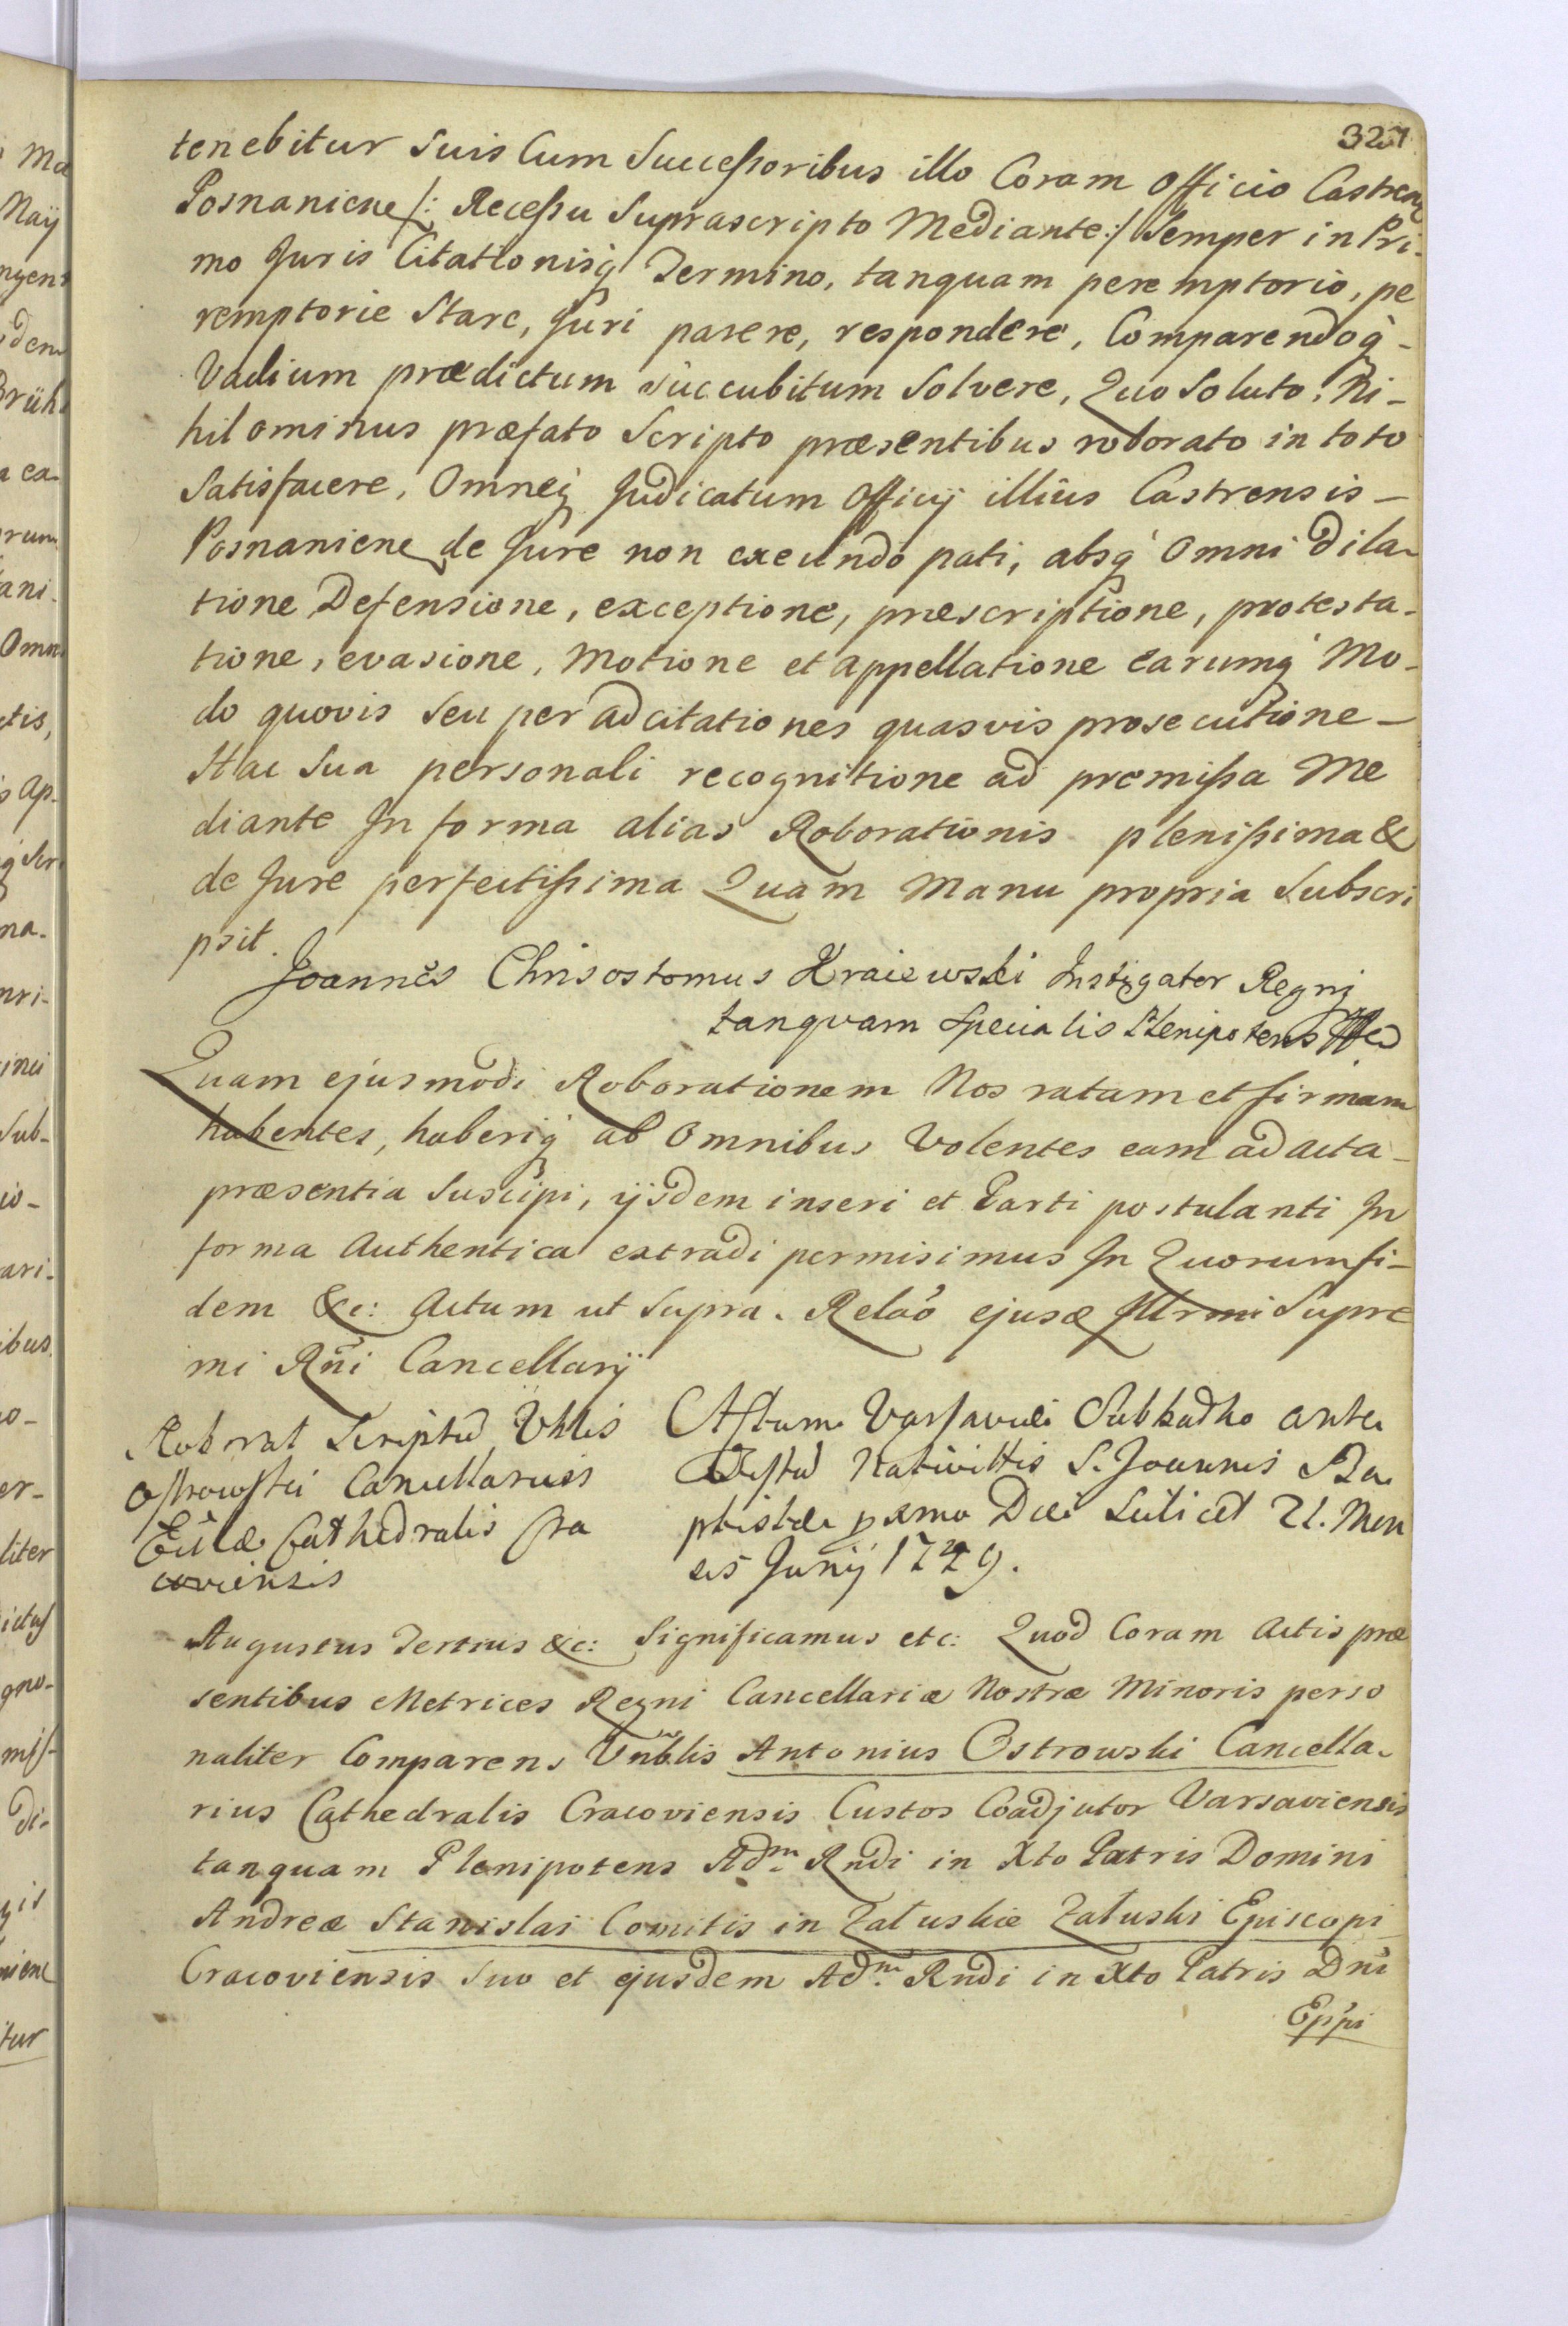 327
tenebitur Suis Cum Successoribus illo Coram Officio Castren
Posnaniene /: Recessu Suprascripto Mediante :/ Semper in Pri-
mo Juris Citationisq Termino, tanquam peremptorio, pe
remptorie Stare, Juri parere, respondere, Comparendoq -
Vadium prædictum succubitum Solvere, Quo Soluto. Ni-
hilominus præfato Scripto præsentibus roborato in toto
Satisfacere, Omneq Judicatum Officij illius Castrensis -
Posnaniene de Jure non exeundo pati, absq Omni Dila-
tione Defensione, exceptione, præscriptione, protesta-
tione, evasione, Motione et appellatione earumq Mo-
do quovis Seu per adcitationes quasvis prosecutione -
Hac Sua personali recognitione ad premissa Me
diante In forma alias Roborationis plenissima &
de Jure perfectissima Quam Manu propria Subscri
psit.
Joannes Chrisostomus Kraiewski Instigator Regnj
tanqvam Specialis Plenipotens
Quam ejusmodi Roborationem Nos ratam et firmam
habentes, haberiq ab Omnibus Volentes eam ad acta -
præsentia Suscipi, ijsdem inseri et Parti postulanti In
forma Authentica extradi permisimus In Quorum fi-
dem &c: Actum ut Supra. Relaõ ejusd Illrmi Supre
mi Rni Cancellarij
Roborat Scriptu Vblis
Ostrowski Cancellarius
Eccłæ Cathedralis Cra
coviensis
Actum Varsaviæ Sabbatho ante
Festu Nativittis S. Joannis Ba
ptistæ pxmo Die Scilicet 21. Men
sis Junij 1749.
Augustus Tertius &c: Significamus etc: Quod Coram Actis præ
sentibus Metrices Regni Cancellariæ Nostræ Minoris perso
naliter Comparens Vnblis Antonius Ostrowski Cancella-
rius Cathedralis Cracoviensis Custos Coadjutor Varsaviensis
tanquam Plenipotens Adm Rndi in Xto Patris Domini
Andreæ Stanislai Comitis in Załuskie Załuski Episcopi
Cracoviensis Suo et ejusdem Adm Rndi in Xto Patris Dni
Eppi